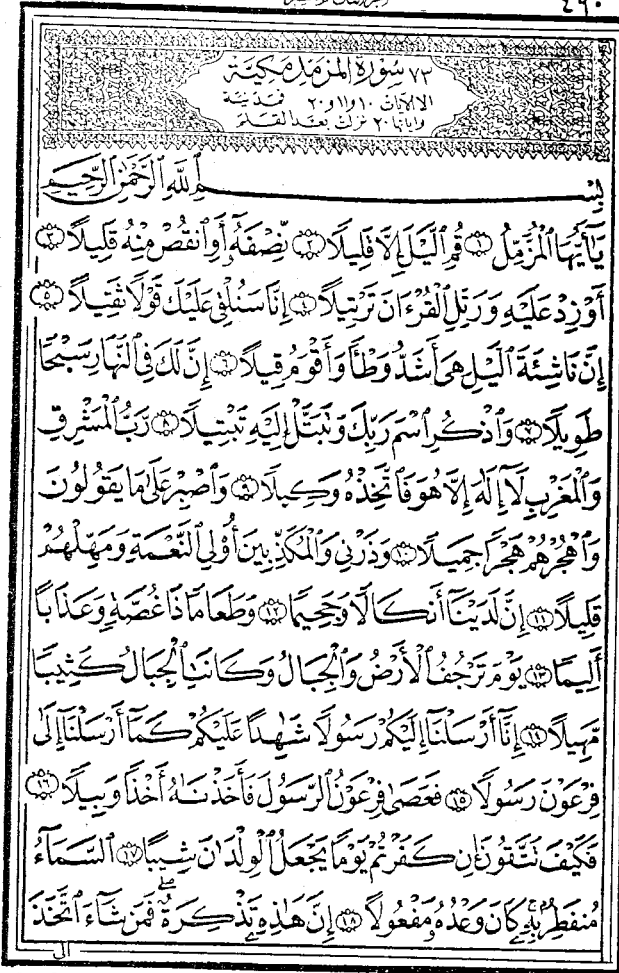 ٤٩٠
٧٣ سُورَةُ الْمُزَّمِّلِ مَكِّيَّة
إلا الآيات ١٠ و ١١ و ٢٠ فمدنية
وآياتها ٢٠ نزلت بعد القلم
بِسْمِ ٱللَّهِ ٱلرَّحْمَٰنِ ٱلرَّحِيمِ
يَٰٓأَيُّهَا ٱلْمُزَّمِّلُ ١ قُمِ ٱلَّيْلَ إِلَّا قَلِيلًا ٢ نِّصْفَهُۥٓ أَوِ ٱنقُصْ مِنْهُ قَلِيلًا ٣
أَوْ زِدْ عَلَيْهِ وَرَتِّلِ ٱلْقُرْءَانَ تَرْتِيلًا ٤ إِنَّا سَنُلْقِى عَلَيْكَ قَوْلًا ثَقِيلًا ٥
إِنَّ نَاشِئَةَ ٱلَّيْلِ هِىَ أَشَدُّ وَطْـًٔا وَأَقْوَمُ قِيلًا ٦ إِنَّ لَكَ فِى ٱلنَّهَارِ سَبْحًا
طَوِيلًا ٧ وَٱذْكُرِ ٱسْمَ رَبِّكَ وَتَبَتَّلْ إِلَيْهِ تَبْتِيلًا ٨ رَّبُّ ٱلْمَشْرِقِ
وَٱلْمَغْرِبِ لَآ إِلَٰهَ إِلَّا هُوَ فَٱتَّخِذْهُ وَكِيلًا ٩ وَٱصْبِرْ عَلَىٰ مَا يَقُولُونَ
وَٱهْجُرْهُمْ هَجْرًا جَمِيلًا ١٠ وَذَرْنِى وَٱلْمُكَذِّبِينَ أُو۟لِى ٱلنَّعْمَةِ وَمَهِّلْهُمْ
قَلِيلًا ١١ إِنَّ لَدَيْنَآ أَنكَالًا وَجَحِيمًا ١٢ وَطَعَامًا ذَا غُصَّةٍ وَعَذَابًا
أَلِيمًا ١٣ يَوْمَ تَرْجُفُ ٱلْأَرْضُ وَٱلْجِبَالُ وَكَانَتِ ٱلْجِبَالُ كَثِيبًا
مَّهِيلًا ١٤ إِنَّآ أَرْسَلْنَآ إِلَيْكُمْ رَسُولًا شَٰهِدًا عَلَيْكُمْ كَمَآ أَرْسَلْنَآ إِلَىٰ
فِرْعَوْنَ رَسُولًا ١٥ فَعَصَىٰ فِرْعَوْنُ ٱلرَّسُولَ فَأَخَذْنَٰهُ أَخْذًا وَبِيلًا ١٦
فَكَيْفَ تَتَّقُونَ إِن كَفَرْتُمْ يَوْمًا يَجْعَلُ ٱلْوِلْدَٰنَ شِيبًا ١٧ ٱلسَّمَآءُ
مُنفَطِرٌۢ بِهِۦ كَانَ وَعْدُهُۥ مَفْعُولًا ١٨ إِنَّ هَٰذِهِۦ تَذْكِرَةٌ فَمَن شَآءَ ٱتَّخَذَ
إلى